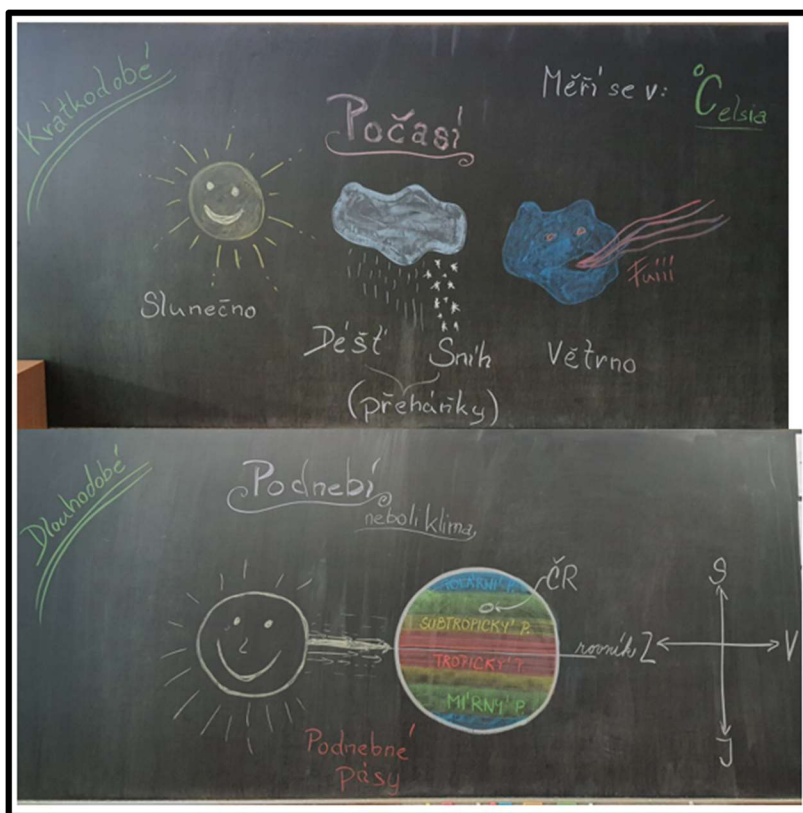 Krátkodobé
Počasí
Měří se v: °Celsia
Slunečno
Déšť Sníh
(přeháňky)
Větrno
Fuííí
Dlouhodobé
Podnebí
neboli klima
ČR
POLÁRNÍ P.
SUBTROPICKÝ P.
TROPICKÝ P.
MÍRNÝ P.
rovník
Podnebné
pásy
S
Z V
J